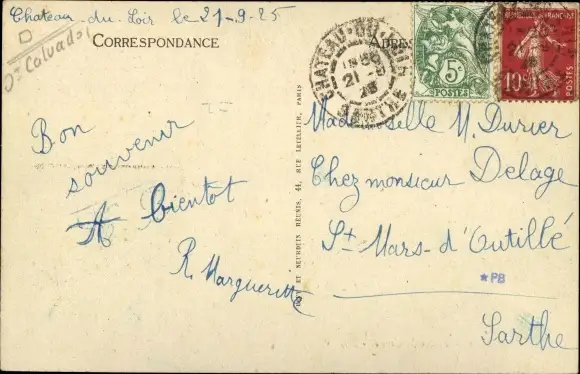 Chateau-du-Loir le 21-9-25
D
Dt Calvados
CORRESPONDANCE
CHATEAU-DU-LOIR
21-9
SARTHE
5c
POSTES
10c
POSTES
Bon
souvenir
A bientot
R. Margueritte
RUE LECELLIER, PARIS
ET NEURDEIN RÉUNIS, 44,
Mademoiselle M. Durier
Chez monsieur Delage
St Mars-d'Outillé
*PB
Sarthe